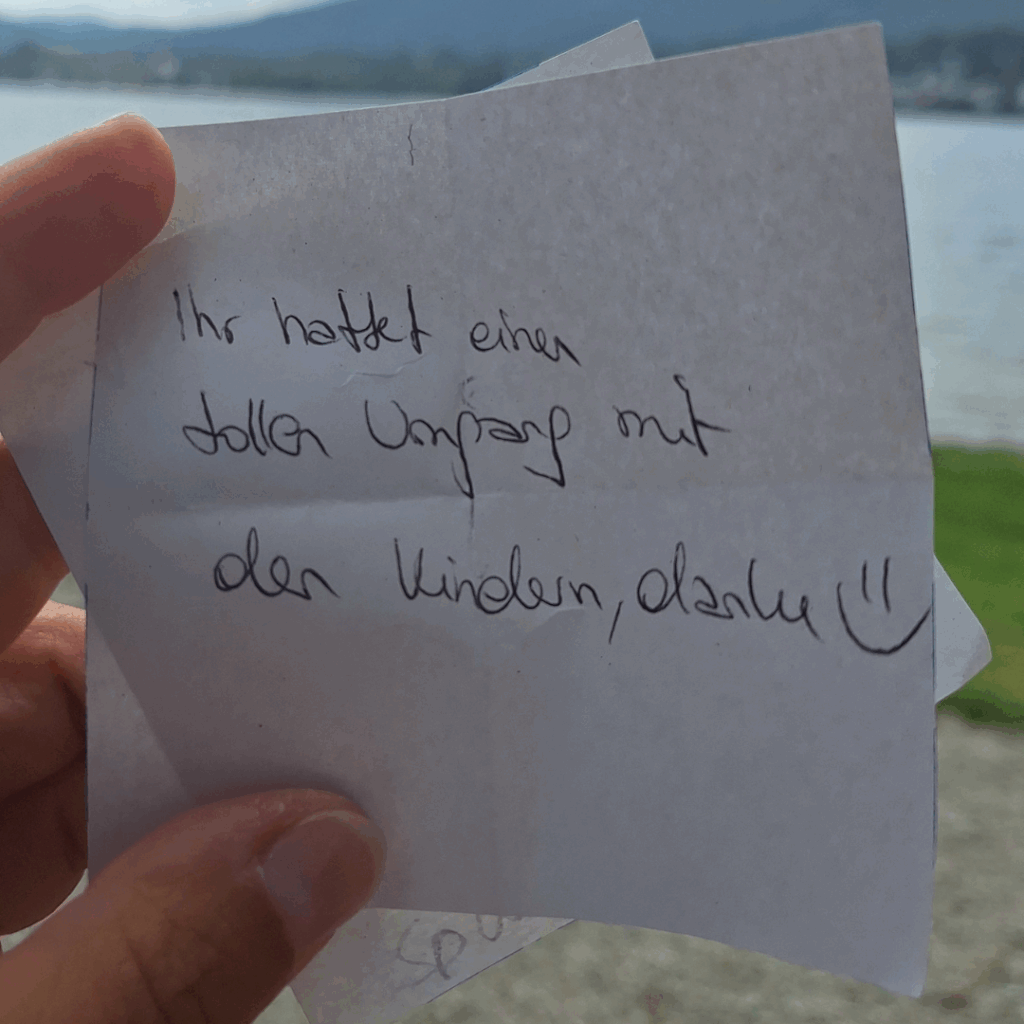 Ihr hattet einen
tollen Umgang mit
den Kindern, danke
Sp